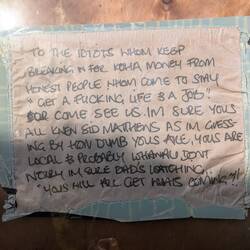 TO THE IDIOTS WHOM KEEP
BREAKING IN FOR KOHA MONEY FROM
HONEST PEOPLE WHOM COME TO STAY
"GET A FUCKING LIFE & A JOB"
OR COME SEE US IM SURE YOUS
ALL KNEW SID MATHEWS AS IM GUESS-
ING BY HOW DUMB YOUS ARE, YOUS ARE
LOCAL & PROBABLY WHANAU DONT
WORRY IM SURE DAD'S WATCHING,
"YOUS WILL ALL GET WHATS COMING"!!